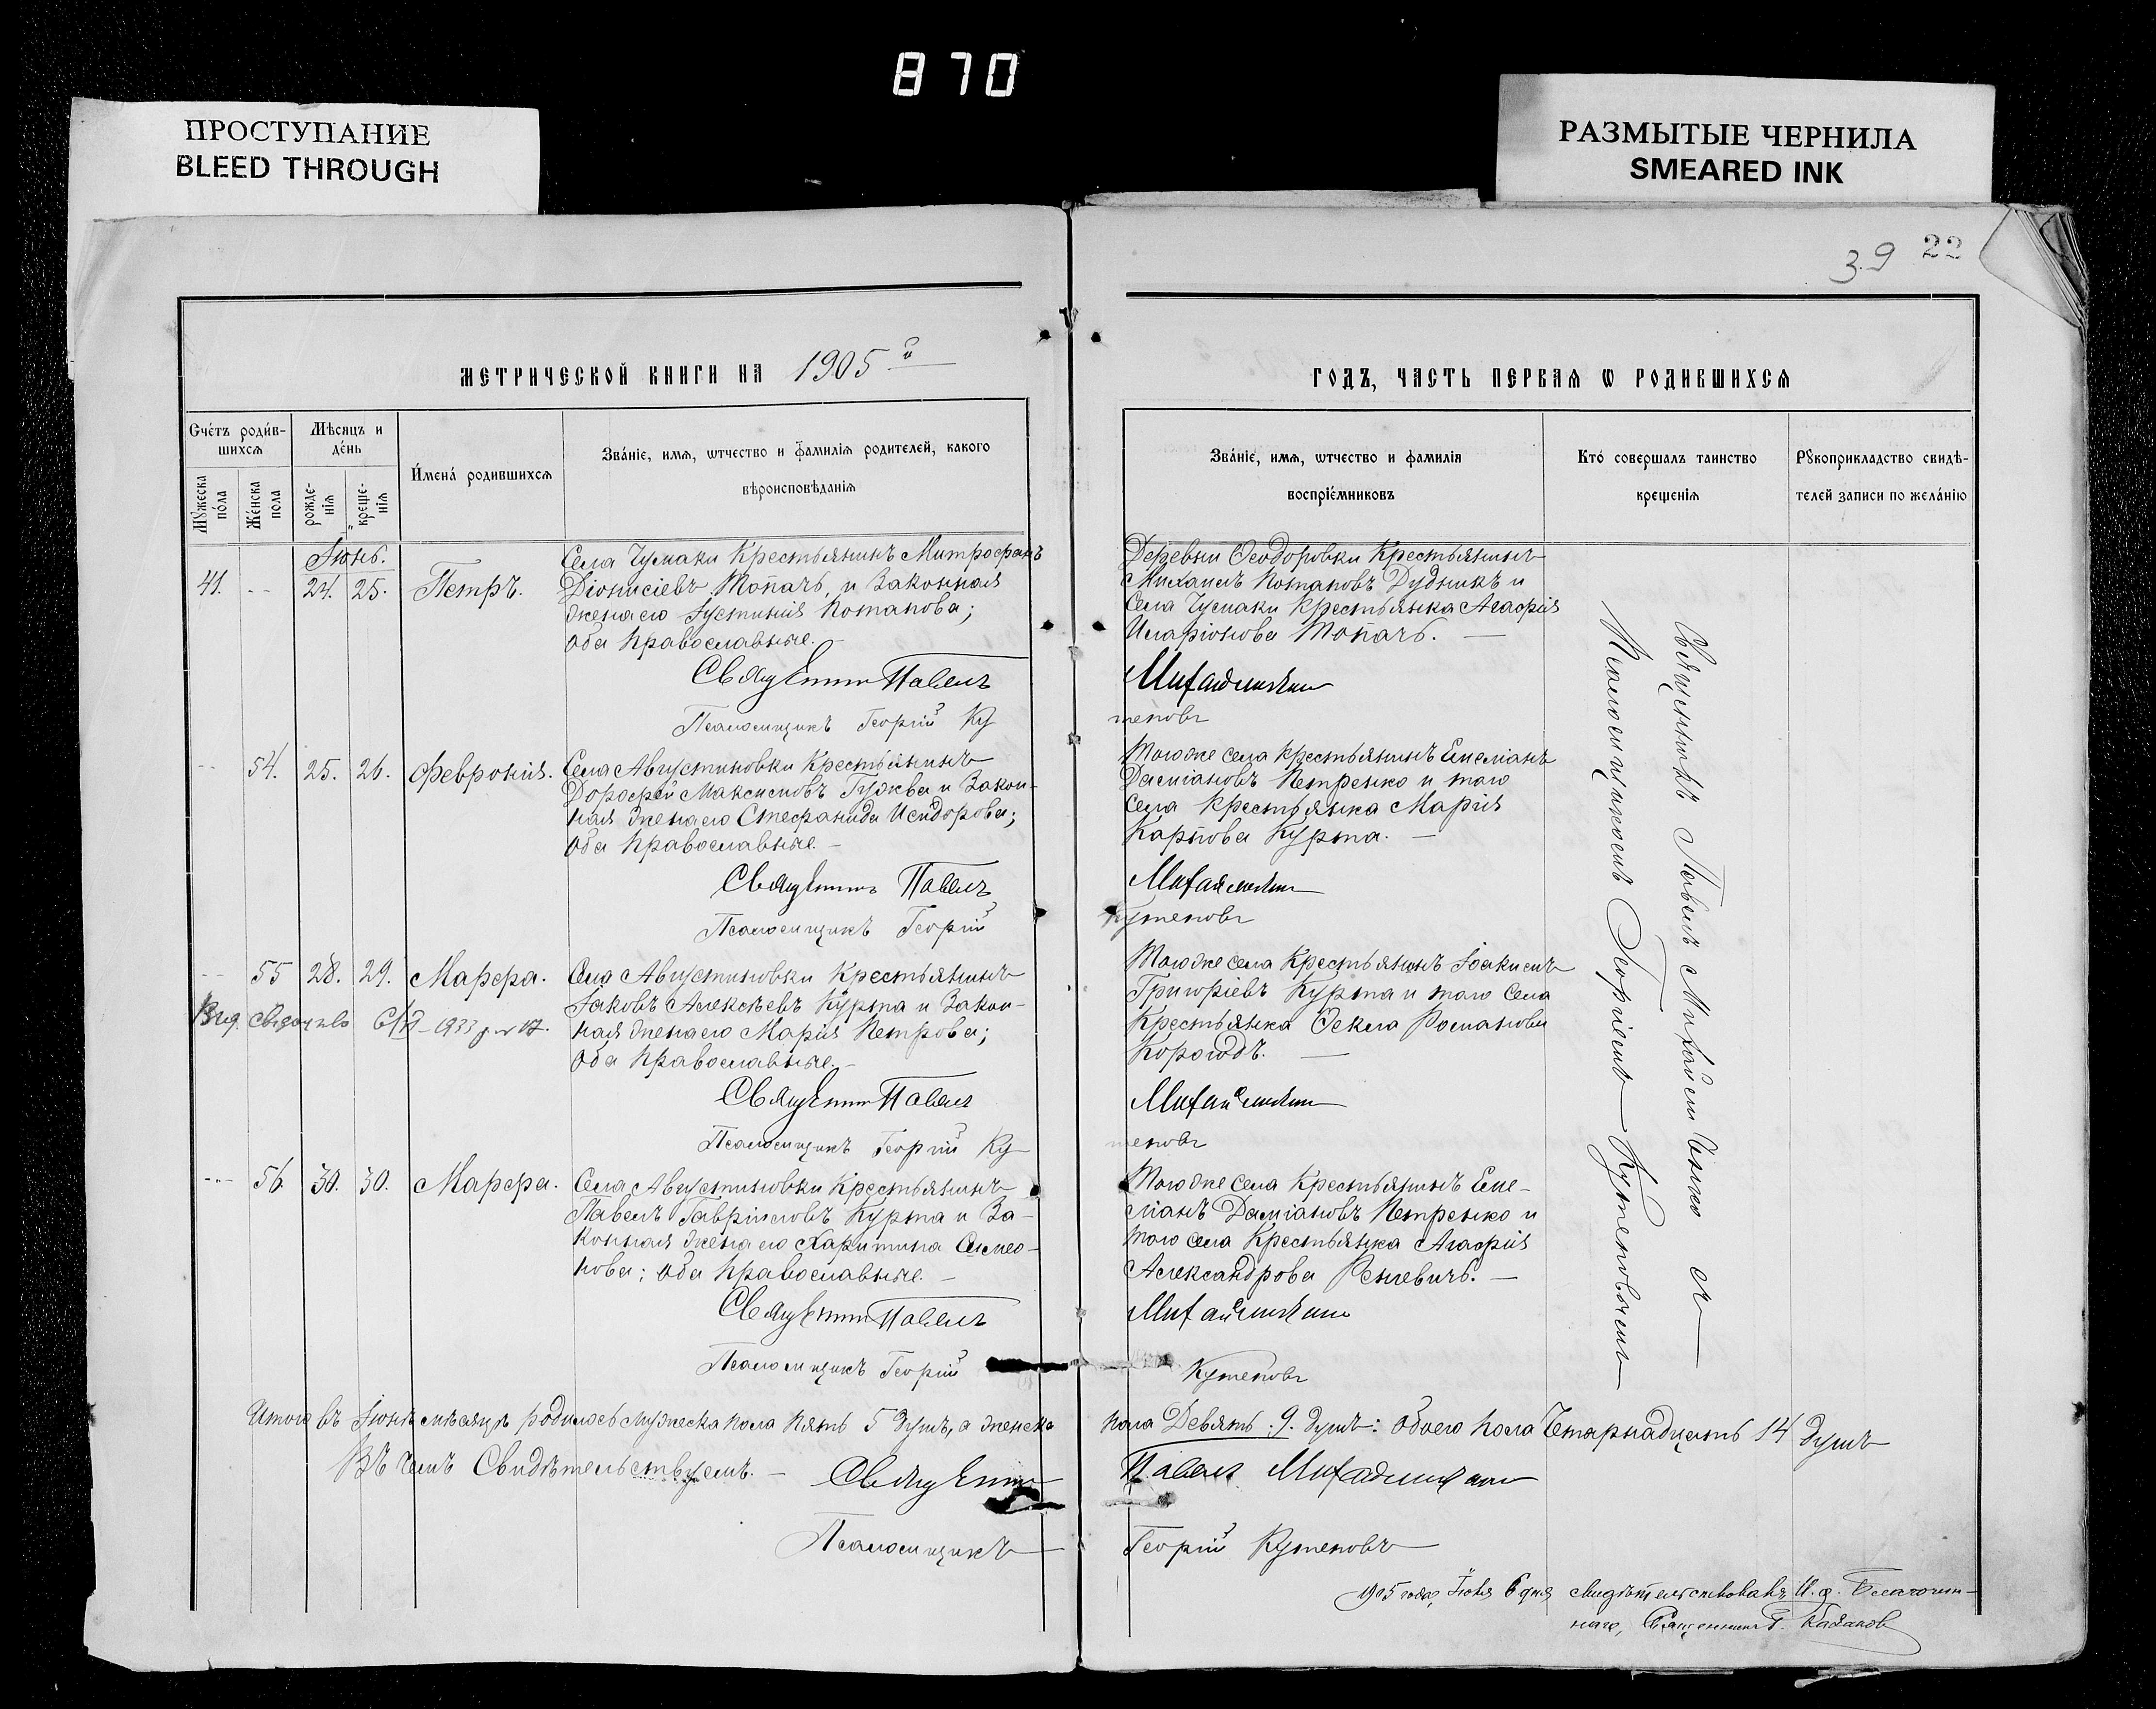 870
ПРОСТУПАНИЕ
BLEED THROUGH
РАЗМЫТЫЕ ЧЕРНИЛА
SMEARED INK
39 22
МЕТРИЧЕСКОЙ КНИГИ НА 1905 й
ГОДЪ, ЧАСТЬ ПЕРВАѦ Ѡ РОДИВШИХСѦ
Счéтъ роди́в-
шихсѧ
Мѣсѧцъ и
де́нь
Мꙋжеска
по́ла
Же́нска
пола
рожде-
нїѧ
креще-
нїѧ
И́мена́ родившихсѧ
Зва́нїе, имѧ, ѡтчество и фамилїѧ родителей, какого
вѣроисповѣданїѧ
Зва́нїе, имѧ, ѡтчество и фамилїѧ
воспрїе́мниковъ
Кто́ совершалъ таинство
крещенїѧ
Рꙋкоприкладство свидѣ-
телей записи по жела́нїю
Іюнь.
41. -- 24. 25. Петръ.
Села Чумаки Крестьянинъ Митрофанъ
Діонисіевъ Топачъ, и Законная
жена его Іустинія Потапова;
оба православные. –
Священник Павелъ
Псаломщикъ Георгій Ку
Деревни Ѳеодоровки Крестьянинъ
Михаилъ Потаповъ Дудникъ и
Села Чумаки крестьянка Агафія
Иларіонова Топачъ. —
теповъ
-- 54. 25. 26. Февронія.
Села Августиновки Крестьянинъ
Дорофей Максимовъ Гужва и Закон-
ная жена его Стефанида Исидорова;
оба православные. –
Священникъ Павелъ
Псаломщикъ Георгій
Тогоже села крестьянинъ Емеліанъ
Даміановъ Петренко и того
села крестьянка Марія
Карпова Курта. —
Кутеповъ
-- 55 28. 29. Марфа.
Село Августиновки Крестьянинъ
Іаковъ Алексѣевъ Курта и Закон-
ная жена его Марія Петрова;
оба православные. –
Священник Павелъ
Псаломщикъ Георгій Ку
Тогоже села Крестьянинъ Іоакимъ
Григоріевъ Курта и того села
Крестьянка Ѳекла Романова
Корогодъ. —
теповъ
--- 56. 30. 30. Марфа.
Села Августиновки Крестьянинъ
Павелъ Гавріиловъ Курта и За-
конная жена его Харитина Симео-
нова; оба православные. –
Священник Павелъ
Псаломщикъ Георгій
Тогоже села Крестьянинъ Еме-
ліанъ Даміановъ Петренко и
того села Крестьянка Агафія
Александрова Реневичъ. —
Кутеповъ
Священникъ Павелъ
Псаломщикомъ Георгіемъ Кутеповымъ
Итого въ Іюнѣ мѣсяцѣ родилось мужеска пола пять 5 душъ, а женска пола Девять .9. душъ: обоего пола Четырнадцать 14 душъ
Въ чемъ Свидѣтельствуемъ. –
Священник Павелъ
Псаломщикъ Георгій Кутеповъ
1905 года, Іюля 6 дня свидѣтельствовалъ И. д. Благочин-
наго, Священникъ